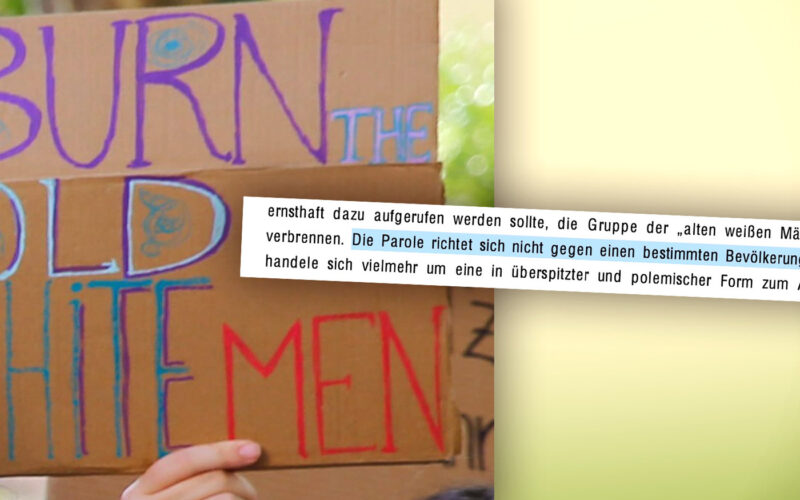 BURN THE
OLD
WHITE MEN
ernsthaft dazu aufgerufen werden sollte, die Gruppe der „alten weißen Mä
verbrennen. Die Parole richtet sich nicht gegen einen bestimmten Bevölkerung
handele sich vielmehr um eine in überspitzter und polemischer Form zum A